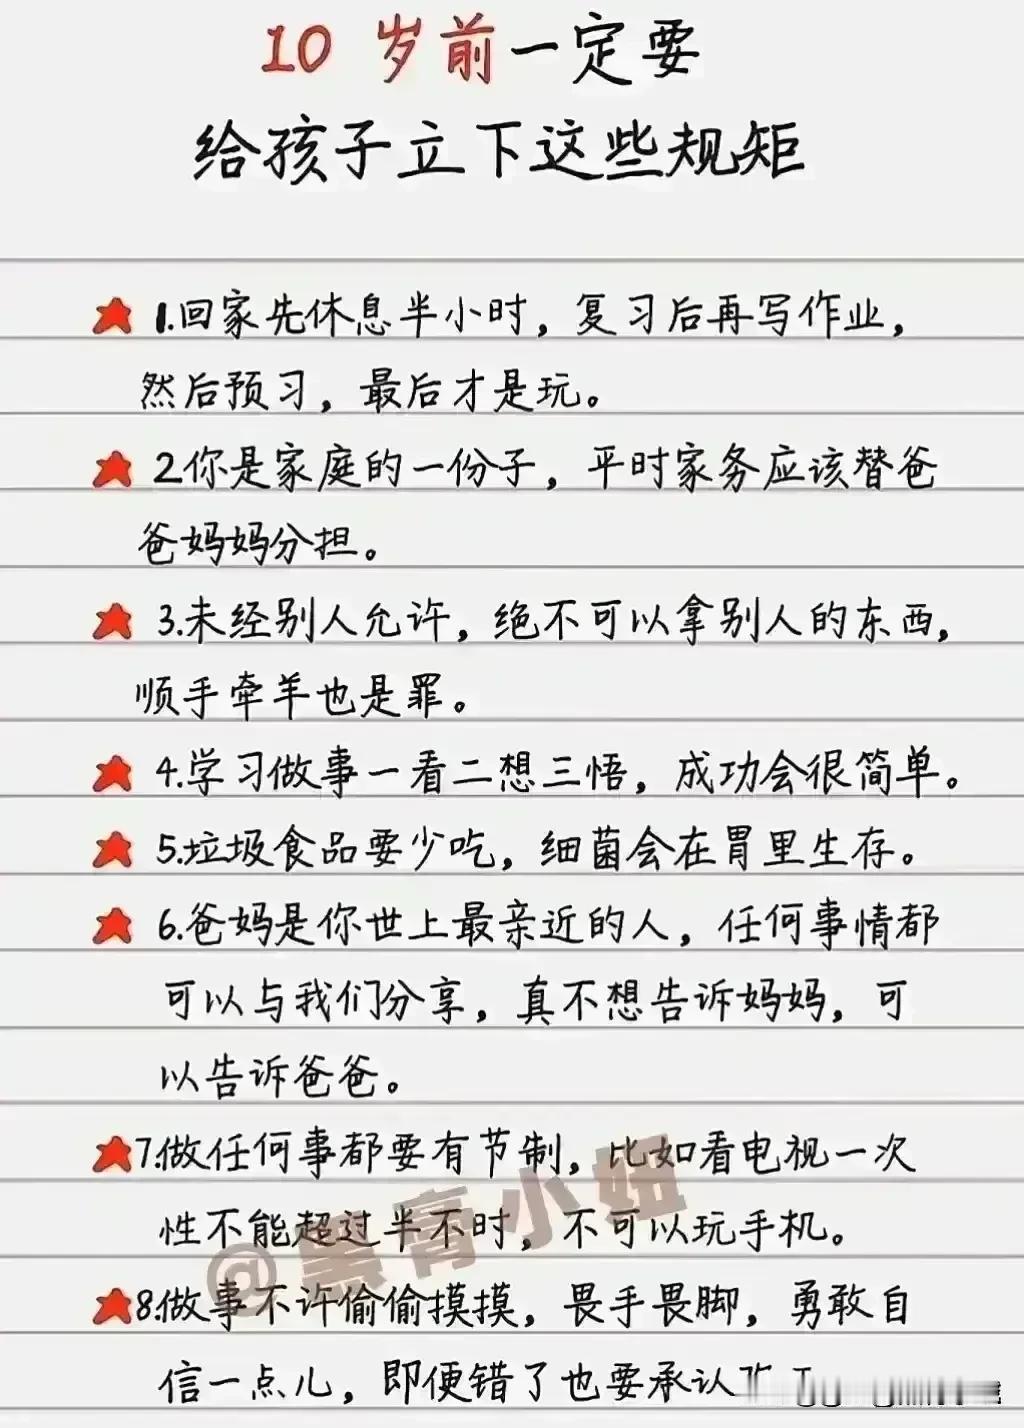 10 岁前一定要
给孩子立下这些规矩
1.回家先休息半小时，复习后再写作业，
然后预习，最后才是玩。
2.你是家庭的一份子，平时家务应该替爸
爸妈妈分担。
3.未经别人允许，绝不可以拿别人的东西，
顺手牵羊也是罪。
4.学习做事一看二想三悟，成功会很简单。
5.垃圾食品要少吃，细菌会在胃里生存。
6.爸妈是你世上最亲近的人，任何事情都
可以与我们分享，真不想告诉妈妈，可
以告诉爸爸。
7.做任何事都要有节制，比如看电视一次
性不能超过半不时，不可以玩手机。
@黑膏小妞
8.做事不许偷偷摸摸，畏手畏脚，勇敢自
信一点儿，即便错了也要承认